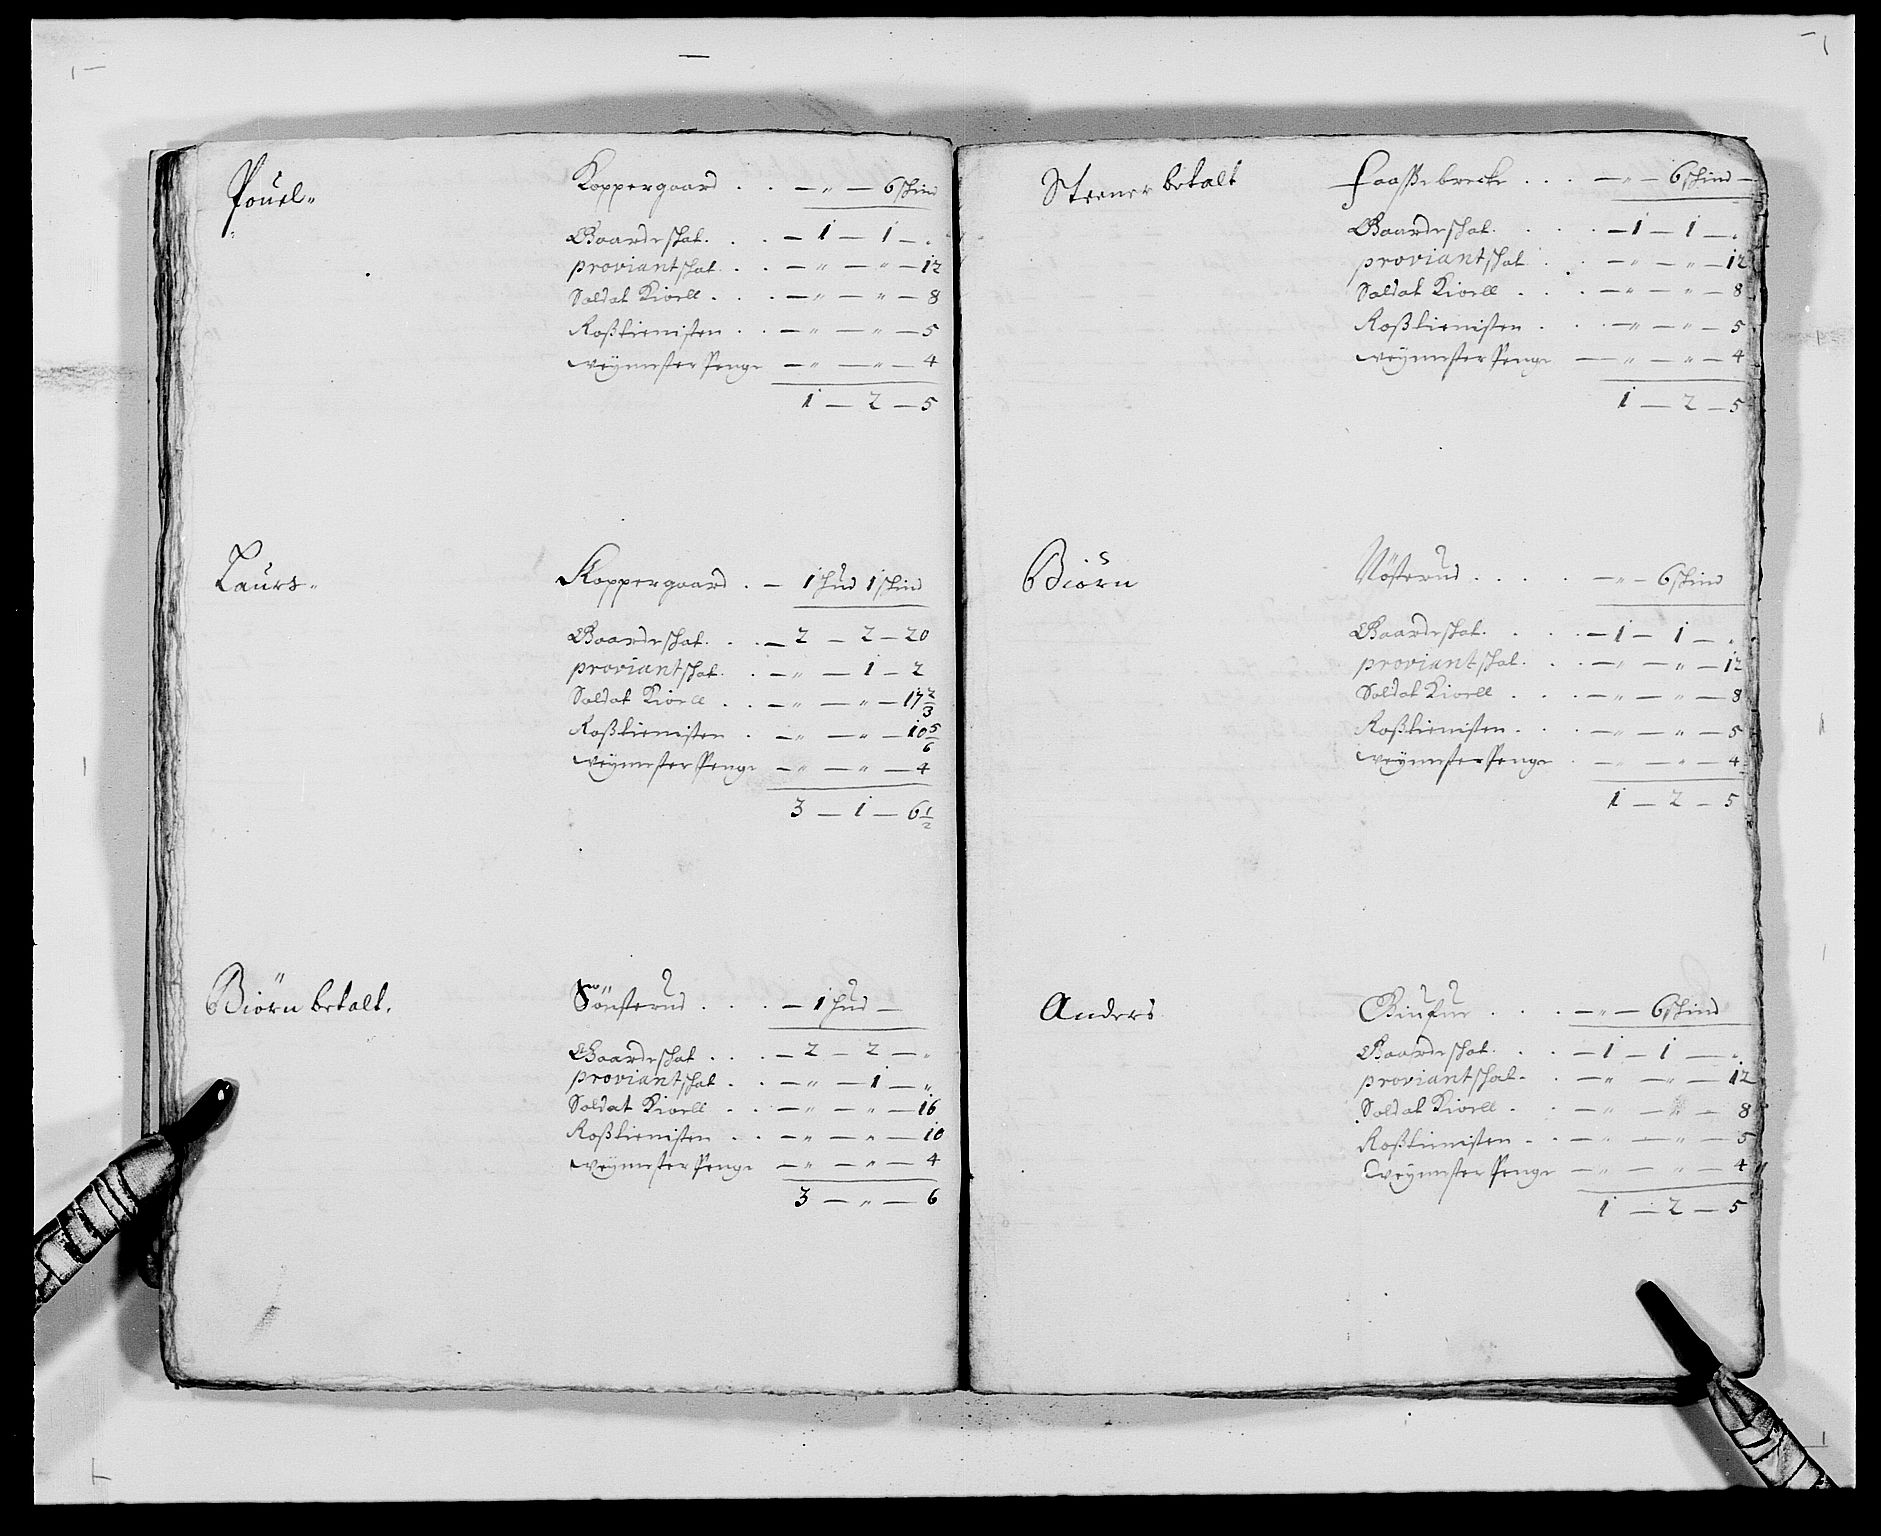 Pouel Koppergaard . . — " — 6 skind
Gaardeskat . . . — 1 — 1 — "
proviantskat . . — " — " — 12
Soldat Kioell . . . — " — " — 8
Roßtienisten . . — " — " — 5
weÿmester Penge — " — " — 4
1 — 2 — 5
Laurs Koppergaard . — 1 hud 1 skind
Gaardeskat . . . — 2 — 2 — 20
proviantskat . . — " — 1 — 2
Soldat Kioell . . — " — " — 17 2/3
Roßtienisten . — " — " — 10 5/6
weÿmester Penge — " — " — 4
3 — 1 — 6 1/2
Biörn betalt. Sönsterud . . . — 1 hud —
Gaardeskat . . . — 2 — 2 — "
proviantskat . . — " — 1 — "
Soldat Kioell . . — " — " — 16
Roßtienisten . . — " — " — 10
weÿmester Penge — " — " — 4
3 — " — 6
Steener betalt Faaßebrecke . . . — " — 6 skind —
Gaardeskat . . . — 1 — 1 — "
proviantskat . . — " — " — 12
Soldat Kioell . . . — " — " — 8
Roßtienisten . . . — " — " — 5
weÿmester Penge — " — " — 4
1 — 2 — 5
Biörn Nösterud . . . . — " — 6 skind
Gaardeskat . . . — 1 — 1 — "
proviantskat . . . — " — " — 12
Soldat Kioell . . . — " — " — 8
Roßtienisten . . . — " — " — 5
weÿmester Penge . — " — " — 4
1 — 2 — 5
Anders . . . — " — 6 skind
Gaardeskat . . . — 1 — 1 — "
proviantskat . . — " — " — 12
Soldat Kioell . . — " — " — 8
Roßtienisten . . — " — " — 5
weÿmester Penge — " — " — 4
1 — 2 — 5